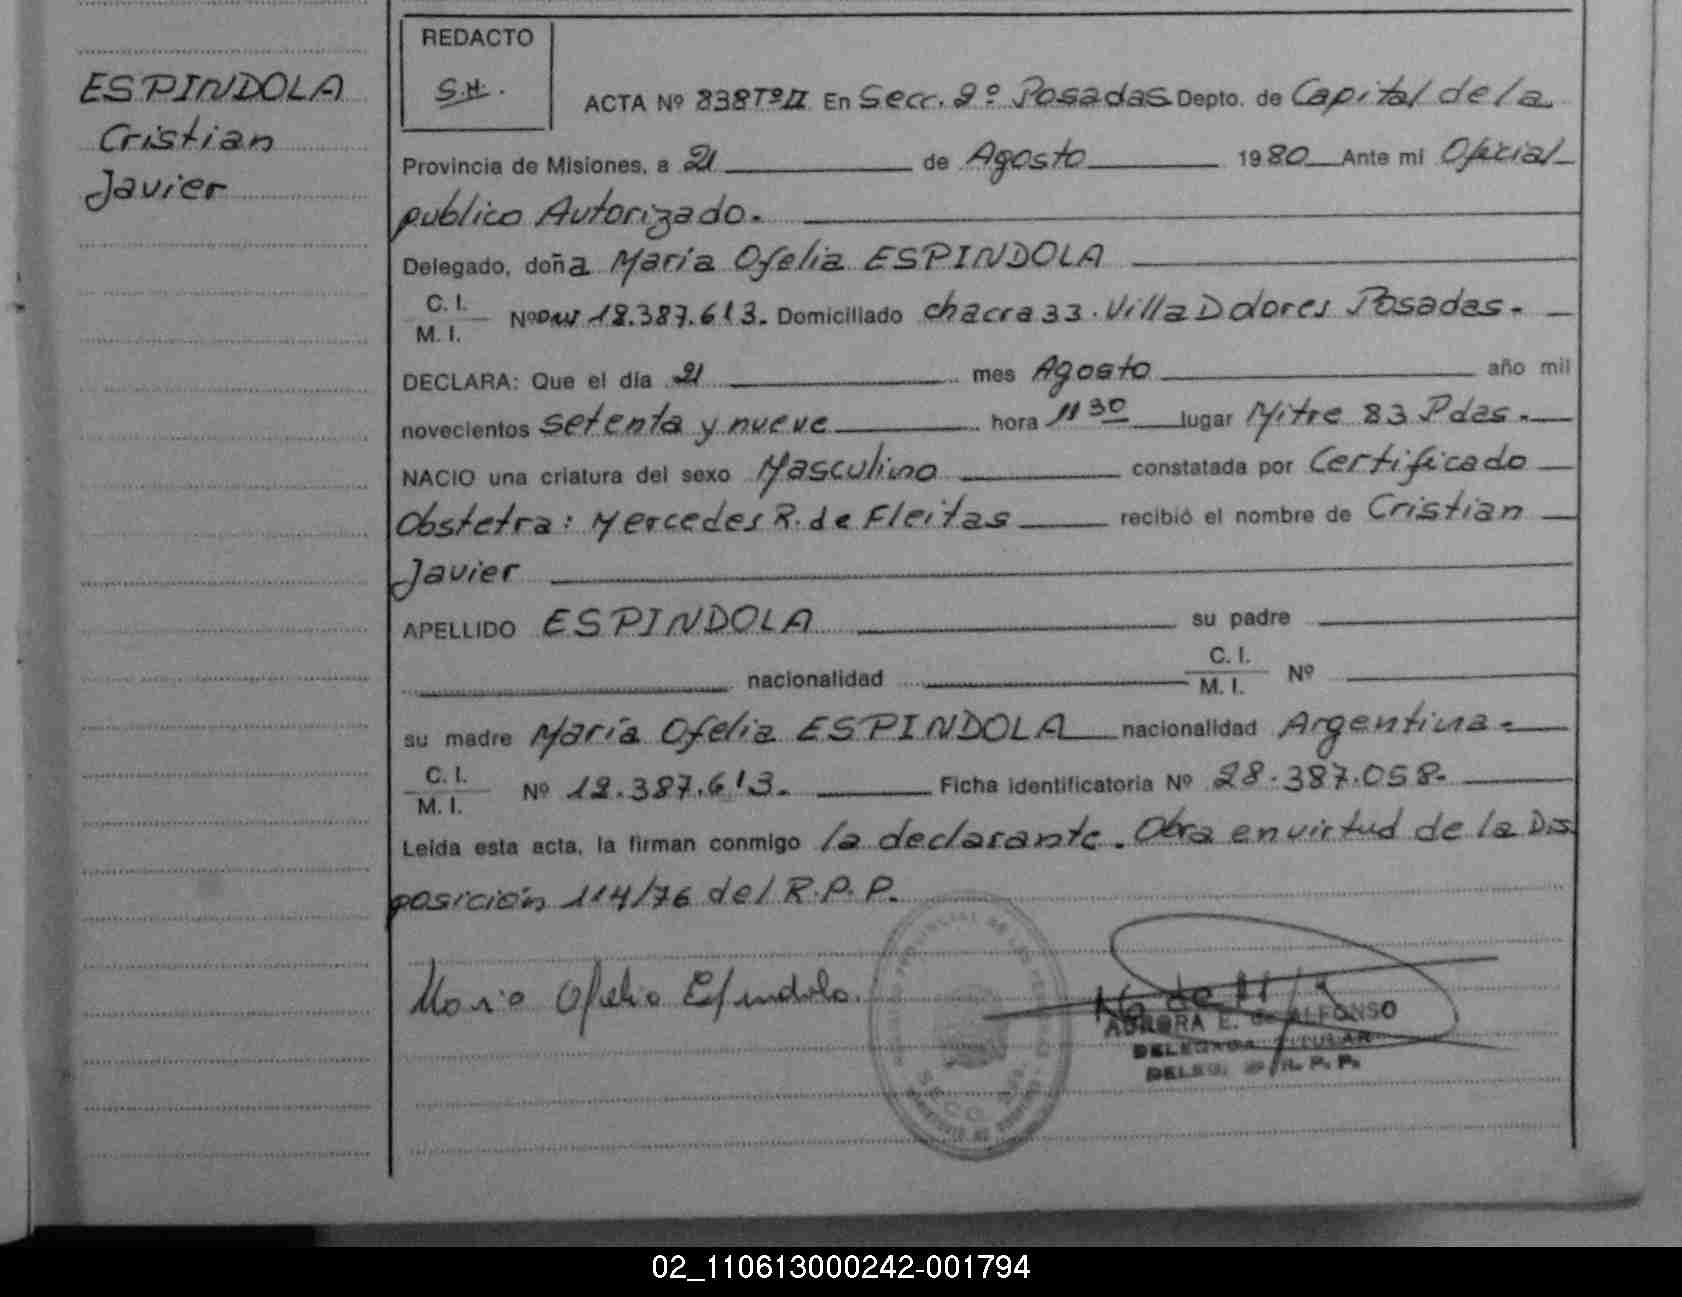 ESPINDOLA
Cristian
Javier
REDACTO
S.H.
ACTA Nº 838 Tº II En Secr. 2º Posadas Depto. de Capital de la
Provincia de Misiones, a 21 de Agosto 1980 Ante mi Oficial
publico Autorizado.
Delegado, doña Maria Ofelia ESPINDOLA
C. I.
M. I.
Nº DNI 12.387.613. Domiciliado chacra 33. Villa Dolores Posadas.
DECLARA: Que el día 21 mes Agosto año mil
novecientos setenta y nueve hora 11 30 lugar Mitre 83 Pdas.
NACIO una criatura del sexo Masculino constatada por Certificado
Obstetra: Mercedes R. de Fleitas recibió el nombre de Cristian
Javier
APELLIDO ESPINDOLA su padre
nacionalidad C. I. M. I. Nº
su madre María Ofelia ESPINDOLA nacionalidad Argentina.
C. I.
M. I.
Nº 12.387.613. Ficha identificatoria Nº 28.387.058.
Leída esta acta, la firman conmigo la declarante. Obra en virtud de la Dis
posición 114/76 del R.P.P.
Maria Ofelia Espindola.
AURORA E. ALFONSO
DELEGADA TITULAR
DELEG. R. P. P.
02_110613000242-001794